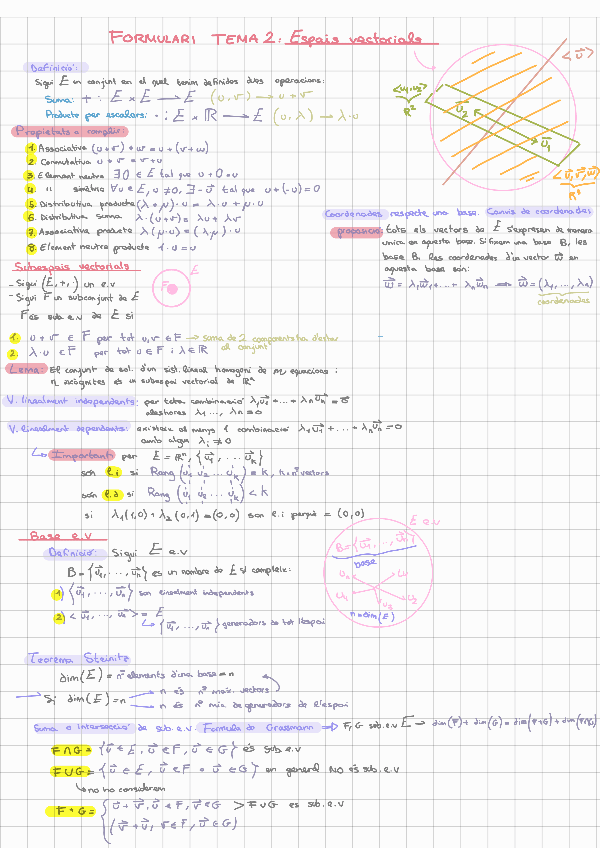 FORMULARI TEMA 2: Espais vectorials
Definició:
Sigui E un conjunt en el qual tenim definides dues operacions:
Suma: + : E x E → E (u,v) → u + v
Producte per escalars: · : E x ℝ → E (u, λ) → λ·u
Propietats a complir:
1. Associativa (u+v)+w = u+(v+w)
2. Commutativa u+v = v+u
3. Element neutre ∃0 ∈ E tal que u+0=u
4. " simètric ∀u ∈ E, u≠0, ∃-u tal que u+(-u)=0
5. Distributiva producte (λ+μ)·u = λ·u + μ·u
6. Distributiva suma λ·(u+v) = λu + λv
7. Associativa producte λ(μ·u) = (λμ)·u
8. Element neutre producte 1·u=u
<u⃗>
<u₁,u₂>
ℝ²
u⃗₂
u⃗₁
<u⃗,v⃗,w⃗>
Coordenades respecte una base. Canvis de coordenades
proposició: tots els vectors de E s'expresen de manera
única en aquesta base. Si fixem una base B, les
base B, les coordenades d'un vector w⃗ en
aquesta base són:
w⃗ = λ₁u⃗₁+...+ λₙu⃗ₙ ⟹ w⃗ = (λ₁,...,λₙ)
coordenades
Subespais vectorials
- Sigui (E,+,·) un e.v
- Sigui F un subconjunt de E
F és sub. e.v de E si
F
E
1. u+v ∈ F per tot u,v ∈ F → suma de 2 components ha d'estar
al conjunt
2. λ·u ∈ F per tot u ∈ F i λ ∈ ℝ
Lema: El conjunt de sol. d'un sist. lineal homogeni de m equacions i
n incògnites és un subespai vectorial de ℝⁿ
V. linealment independents: per tota combinació λ₁u⃗₁+...+ λₙu⃗ₙ = 0⃗
aleshores λ₁ ..., λₙ = 0
V. linealment dependents: existeix al menys 1 combinació λ₁u⃗₁+...+λₙu⃗ₙ = 0
amb algun λᵢ ≠ 0
Important: per E = ℝⁿ, {u⃗₁, ... u⃗ₖ}
són l.i si Rang (u₁ u₂ ... uₖ) = k, k = nº vectors
són l.d si Rang (u₁ u₂ ... uₖ) < k
si λ₁(1,0) + λ₂(0,1) = (0,0) són l.i perquè = (0,0)
Base e.v
Definició: Sigui E e.v
B = {u⃗₁, ..., u⃗ₙ} és un nombre de E si compleix:
1) {u⃗₁, ..., u⃗ₙ} són linealment independents
2) <u⃗₁, ..., uₙ> = E
{u⃗₁, ..., u⃗ₙ} generadors de tot l'espai
E e.v
B = {u⃗₁, ..., u⃗ₙ}
base
n = dim(E)
Teorema Steinitz
dim(E) = nº elements d'una base = n
Si dim(E) = n
n és nº màx. vectors
n és nº mín de generadors de l'espai
Suma i intersecció de sub. e.v Formula de Grassmann ⟹ F, G sub. e.v E → dim(F) + dim(G) = dim(F+G) + dim(F∩G)
F∩G = {u⃗ ∈ E, u⃗ ∈ F, u⃗ ∈ G} és sub. e.v
F∪G = {u⃗ ∈ E, u⃗ ∈ F o u⃗ ∈ G} en general NO és sub. e.v
no ho considerem
F+G = { u⃗+v⃗, u⃗ ∈ F, v⃗ ∈ G > F∪G és sub. e.v
(v⃗+u⃗, v ∈ F, u⃗ ∈ G)